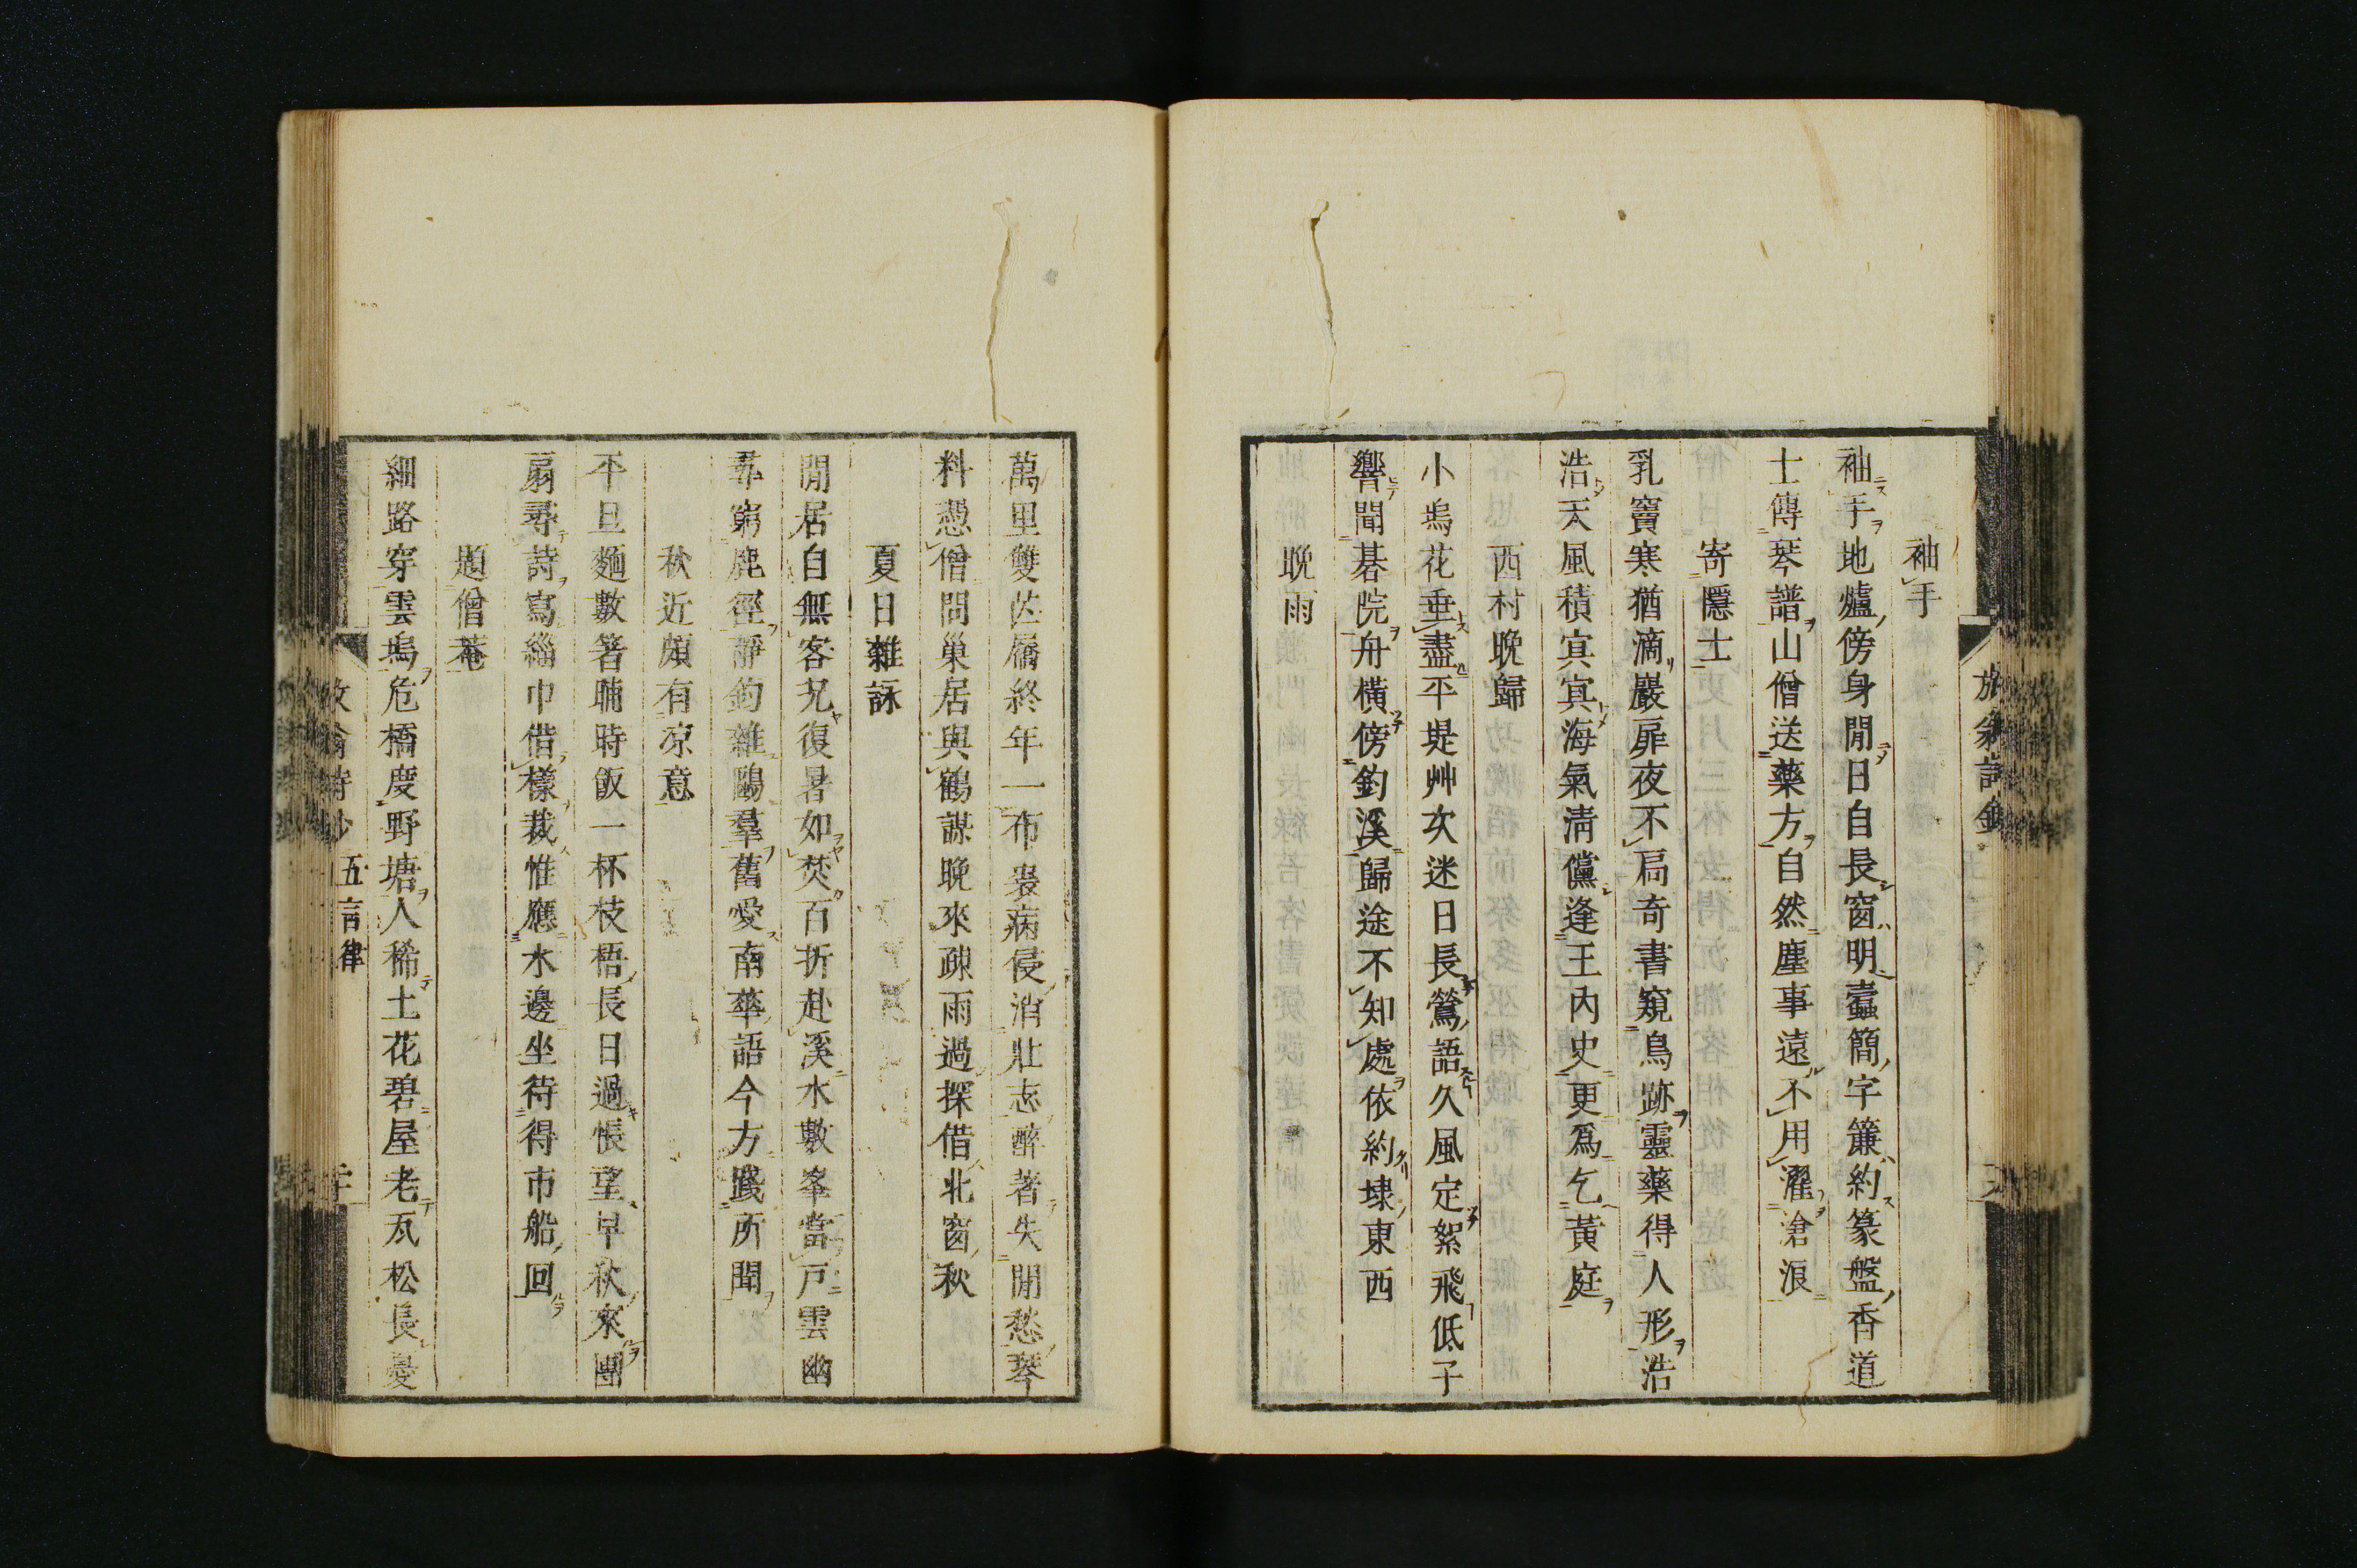 袖手
袖手地爐傍身閒日自長窗明蠹簡字簾約篆盤香道
士傳琴譜山僧送藥方自然塵事遠不用濯滄浪
寄隱士
乳竇寒猶滴巖扉夜不扃奇書窺鳥跡靈藥得人形浩
浩天風積冥冥海氣淸儻逢王內史更爲乞黃庭
西村晚歸
小塢花垂盡平堤艸欲迷日長鶯語久風定絮飛低子
響聞碁院舟橫傍釣溪歸途不知處依約埭東西
晚雨
萬里雙芒屩終年一布裘病侵消壯志醉著失閒愁琴
料憑僧問巢居與鶴謀晚來疎雨過探借北窗秋
夏日雜詠
閒居自無客況復暑如焚百折赴溪水數峯當戶雲幽
尋窮鹿徑靜釣雜鷗羣舊愛南華語今方踐所聞
秋近頗有凉意
平旦麵數箸晡時飯一杯枝梧長日過悵望早秋來團
扇尋詩寫緇巾借樣裁惟應水邊坐待得市船回
題僧菴
細路穿雲塢危橋度野塘人稀土花碧屋老瓦松長憂
五言律